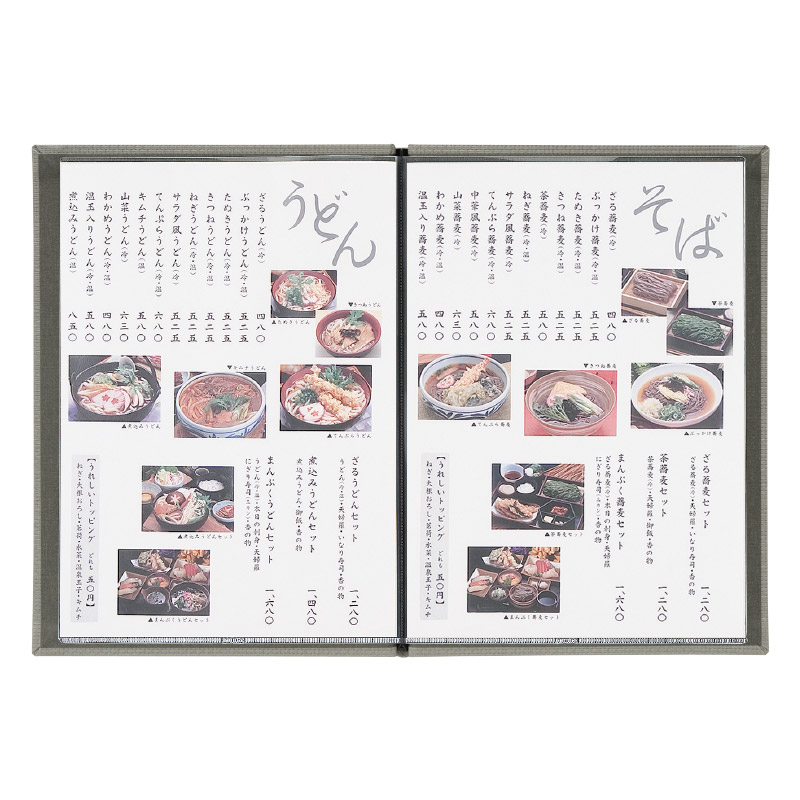 そば
ざる蕎麦(冷) 四八〇
ぶっかけ蕎麦(冷・温) 五二五
たぬき蕎麦(冷・温) 五二五
きつね蕎麦(冷・温) 五二五
茶蕎麦(冷) 五八〇
ねぎ蕎麦(冷・温) 五二五
サラダ風蕎麦(冷・温) 五二五
てんぷら蕎麦(冷・温) 六八〇
中華風蕎麦(冷・温) 五八〇
山菜蕎麦(冷・温) 六三〇
わかめ蕎麦(冷・温) 四八〇
温玉入り蕎麦(冷・温) 五八〇
▼茶蕎麦
▲ざる蕎麦
▲ぶっかけ蕎麦
▼きつね蕎麦
▲てんぷら蕎麦
ざる蕎麦セット 一、二八〇
ざる蕎麦(冷)・天婦羅・いなり寿司・香の物
茶蕎麦セット 一、二八〇
茶蕎麦(冷)・天婦羅・御飯・香の物
まんぷく蕎麦セット 一、六八〇
ざる蕎麦(冷)・本日の刺身・天婦羅
にぎり寿司・香の物
▲茶蕎麦セット
▲まんぷく蕎麦セット
【うれしいトッピング どれも 五〇円】
ねぎ・大根おろし・茗荷・水菜・温泉玉子・キムチ
うどん
ざるうどん(冷) 四八〇
ぶっかけうどん(冷・温) 五二五
たぬきうどん(冷・温) 五二五
きつねうどん(冷・温) 五二五
ねぎうどん(冷・温) 五二五
サラダ風うどん(冷・温) 五二五
てんぷらうどん(冷・温) 六八〇
キムチうどん(温) 五八〇
山菜うどん(冷・温) 六三〇
わかめうどん(冷・温) 四八〇
温玉入りうどん(冷・温) 五八〇
煮込みうどん(温) 八五〇
▼きつねうどん
▲たぬきうどん
▲てんぷらうどん
▼キムチうどん
▲煮込みうどん
ざるうどんセット 一、二八〇
うどん(冷・温)・天婦羅・いなり寿司・香の物
煮込みうどんセット 一、四八〇
煮込みうどん・御飯・香の物
まんぷくうどんセット 一、六八〇
うどん(冷・温)・本日の刺身・天婦羅
にぎり寿司・香の物
▲煮込みうどんセット
▲まんぷくうどんセット
【うれしいトッピング どれも 五〇円】
ねぎ・大根おろし・茗荷・水菜・温泉玉子・キムチ